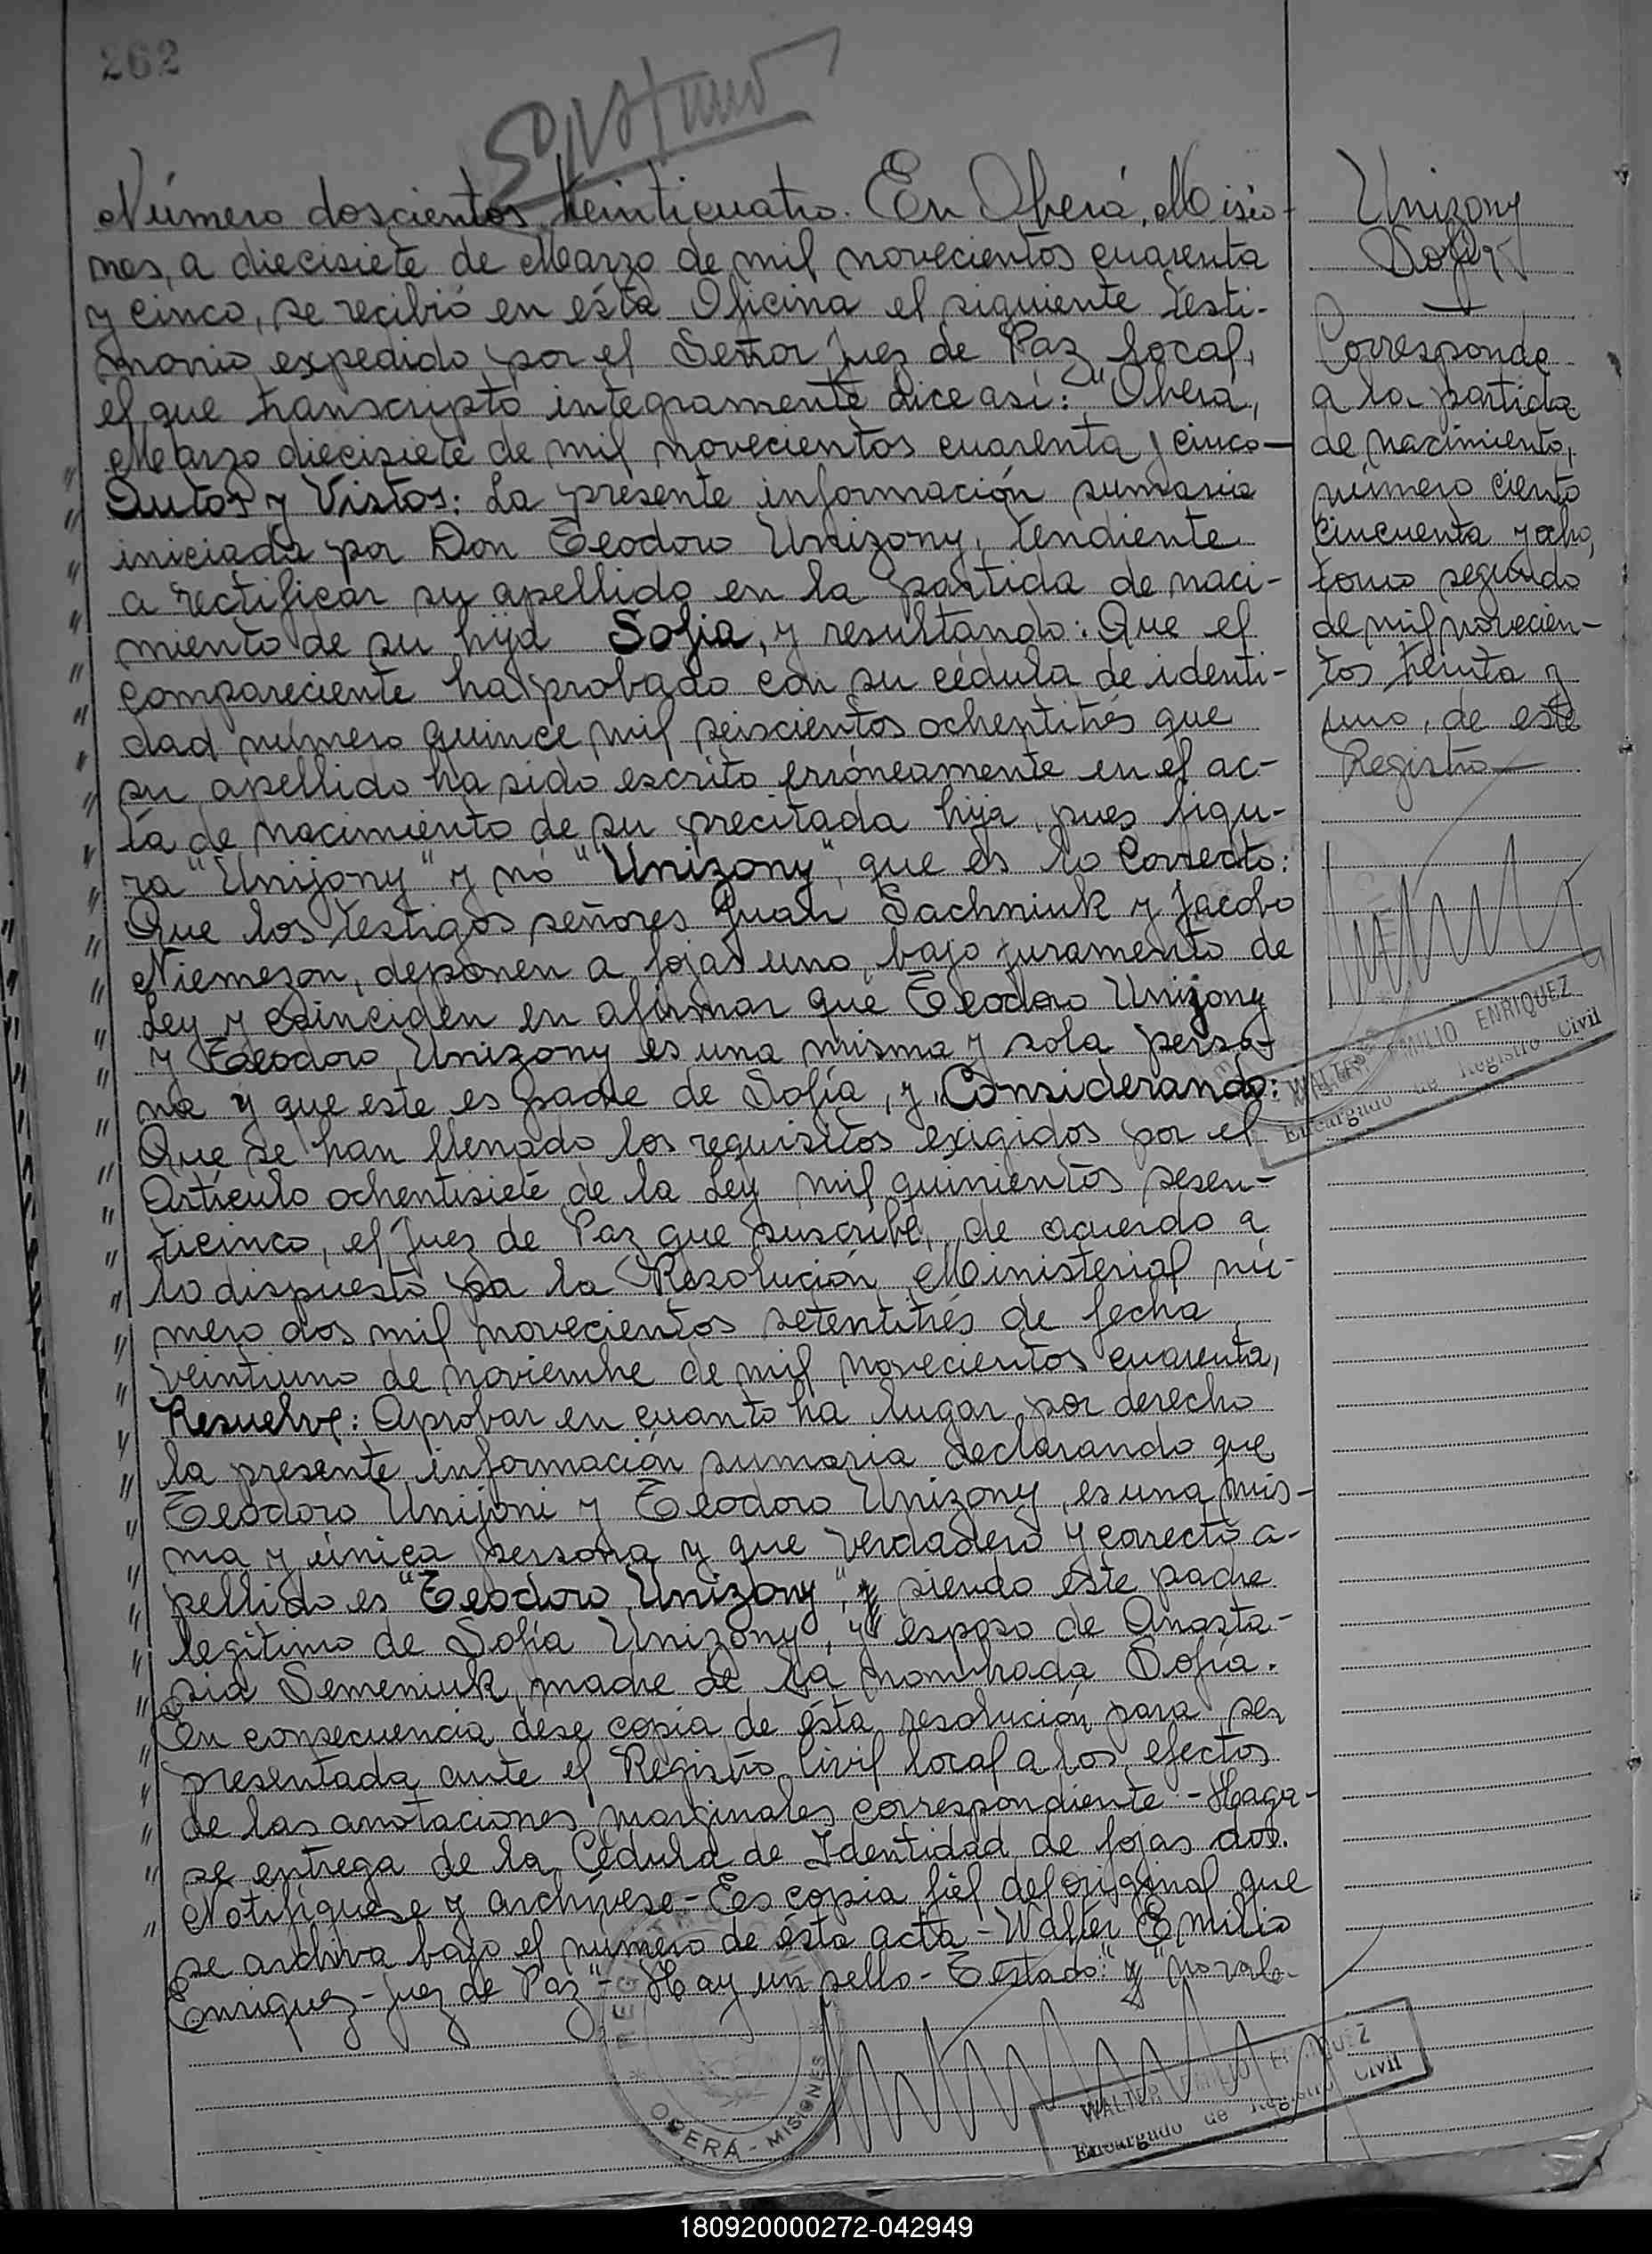 262
Número doscientos veinticuatro. En Oberá, Misio-
nes, a diecisiete de Marzo de mil novecientos cuarenta
y cinco, se recibió en ésta Oficina el siguiente testi-
monio expedido por el Señor Juez de Paz local,
el que transcripto integramente dice así: "Oberá,
Marzo diecisiete de mil novecientos cuarenta y cinco-
Autos y Vistos: La presente información sumaria
iniciada por Don Teodoro Unizony, tendiente
a rectificar su apellido en la partida de naci-
miento de su hija Sofia, y resultando: Que el
compareciente ha probado con su cédula de identi-
dad número quince mil seiscientos ochentitrés que
su apellido ha sido escrito erróneamente en el ac-
ta de nacimiento de su precitada hija, pues figu-
ra "Unijony" y nó "Unizony", que es lo Correcto:
Que los testigos señores Juan Sachniuk y Jacobo
Niemezon, deponen a fojas uno, bajo juramento de
Ley y coinciden en afirmar que Teodoro Unijony
y Teodoro Unizony es una misma y sola perso-
na y que este es padre de Sofía, y, Considerando:
Que se han llenado los requisitos exigidos por el
Artículo ochentisiete de la Ley mil quinientos sesen-
ticinco, el Juez de Paz que suscribe, de acuerdo a
lo dispuesto pa la Resolución Ministerial nú-
mero dos mil novecientos setentitrés de fecha
veintiuno de noviembre de mil novecientos cuarenta,
Resuelve: Aprobar en cuanto ha lugar por derecho
la presente información sumaria declarando que
Teodoro Unijoni y Teodoro Unizony, es una mis-
ma y única persona y que verdadero y correcto a-
pellido es "Teodoro Unizony", y siendo éste padre
legítimo de Sofía Unizony, y esposo de Anasta-
sia Semeniuk, madre de la nombrada Sofía.
En consecuencia dése copia de ésta resolución para ser
presentada ante el Registro Civil local a los efectos
de las anotaciones marginales correspondiente - Haga-
se entrega de la Cédula de Identidad de fojas dos.
Notifíquese y archívese - Ees copia fiel del original que
se archiva bajo el número de ésta acta - Walter Emilio
Enriquez - Juez de Paz" - Hay un sello - Testado: "y" no vale-
Unizony
Sofia
Corresponde
a la partida
de nacimiento,
número ciento
cincuenta y ocho,
tomo segundo
de mil novecien-
tos treinta y
uno, de este
Registro
WALTER EMILIO ENRIQUEZ
Encargado de Registro Civil
OBERÁ - MISIONES
WALTER EMILIO ENRIQUEZ
Encargado de Registro Civil
180920000272-042949